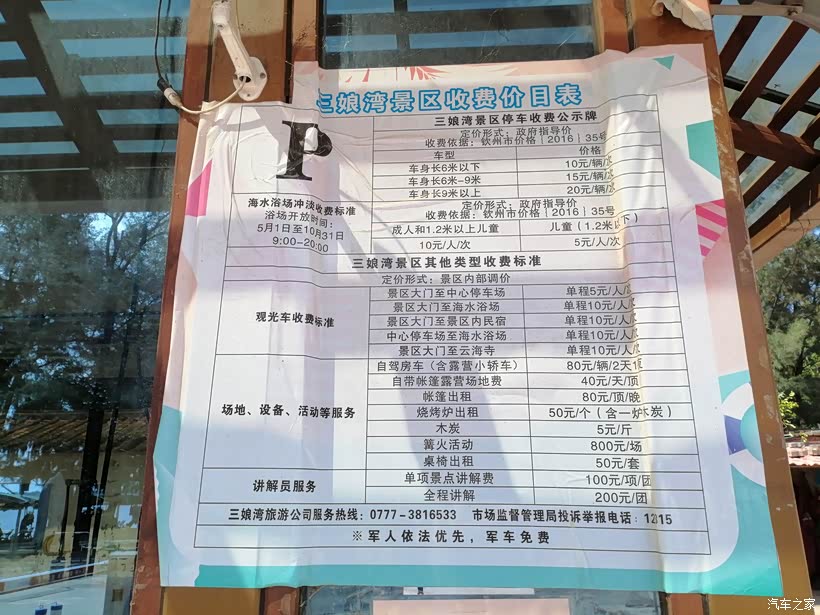 三娘湾景区收费价目表
P
三娘湾景区停车收费公示牌
定价形式：政府指导价
收费依据：钦州市价格|2016|35号
车型 价格
车身长6米以下 10元/辆/次
车身长6米-9米 15元/辆/次
车身长9米以上 20元/辆/次
海水浴场冲淡收费标准
浴场开放时间：
5月1日至10月31日
9:00-20:00
定价形式：政府指导价
收费依据：钦州市价格|2016|35号
成人和1.2米以上儿童 儿童（1.2米以下）
10元/人/次 5元/人/次
三娘湾景区其他类型收费标准
定价形式：景区内部调价
观光车收费标准
景区大门至中心停车场 单程5元/人/
景区大门至海水浴场 单程10元/人/
景区大门至景区内民宿 单程10元/人/
中心停车场至海水浴场 单程10元/人/
景区大门至云海寺 单程10元/人/
场地、设备、活动等服务
自驾房车（含露营小轿车） 80元/辆/2天1
自带帐篷露营场地费 40元/天/顶
帐篷出租 80元/顶/晚
烧烤炉出租 50元/个（含一炉木炭）
木炭 5元/斤
篝火活动 800元/场
桌椅出租 50元/套
讲解员服务
单项景点讲解费 100元/项/团
全程讲解 200元/团
三娘湾旅游公司服务热线：0777-3816533 市场监督管理局投诉举报电话：1215
※军人依法优先，军车免费
汽车之家